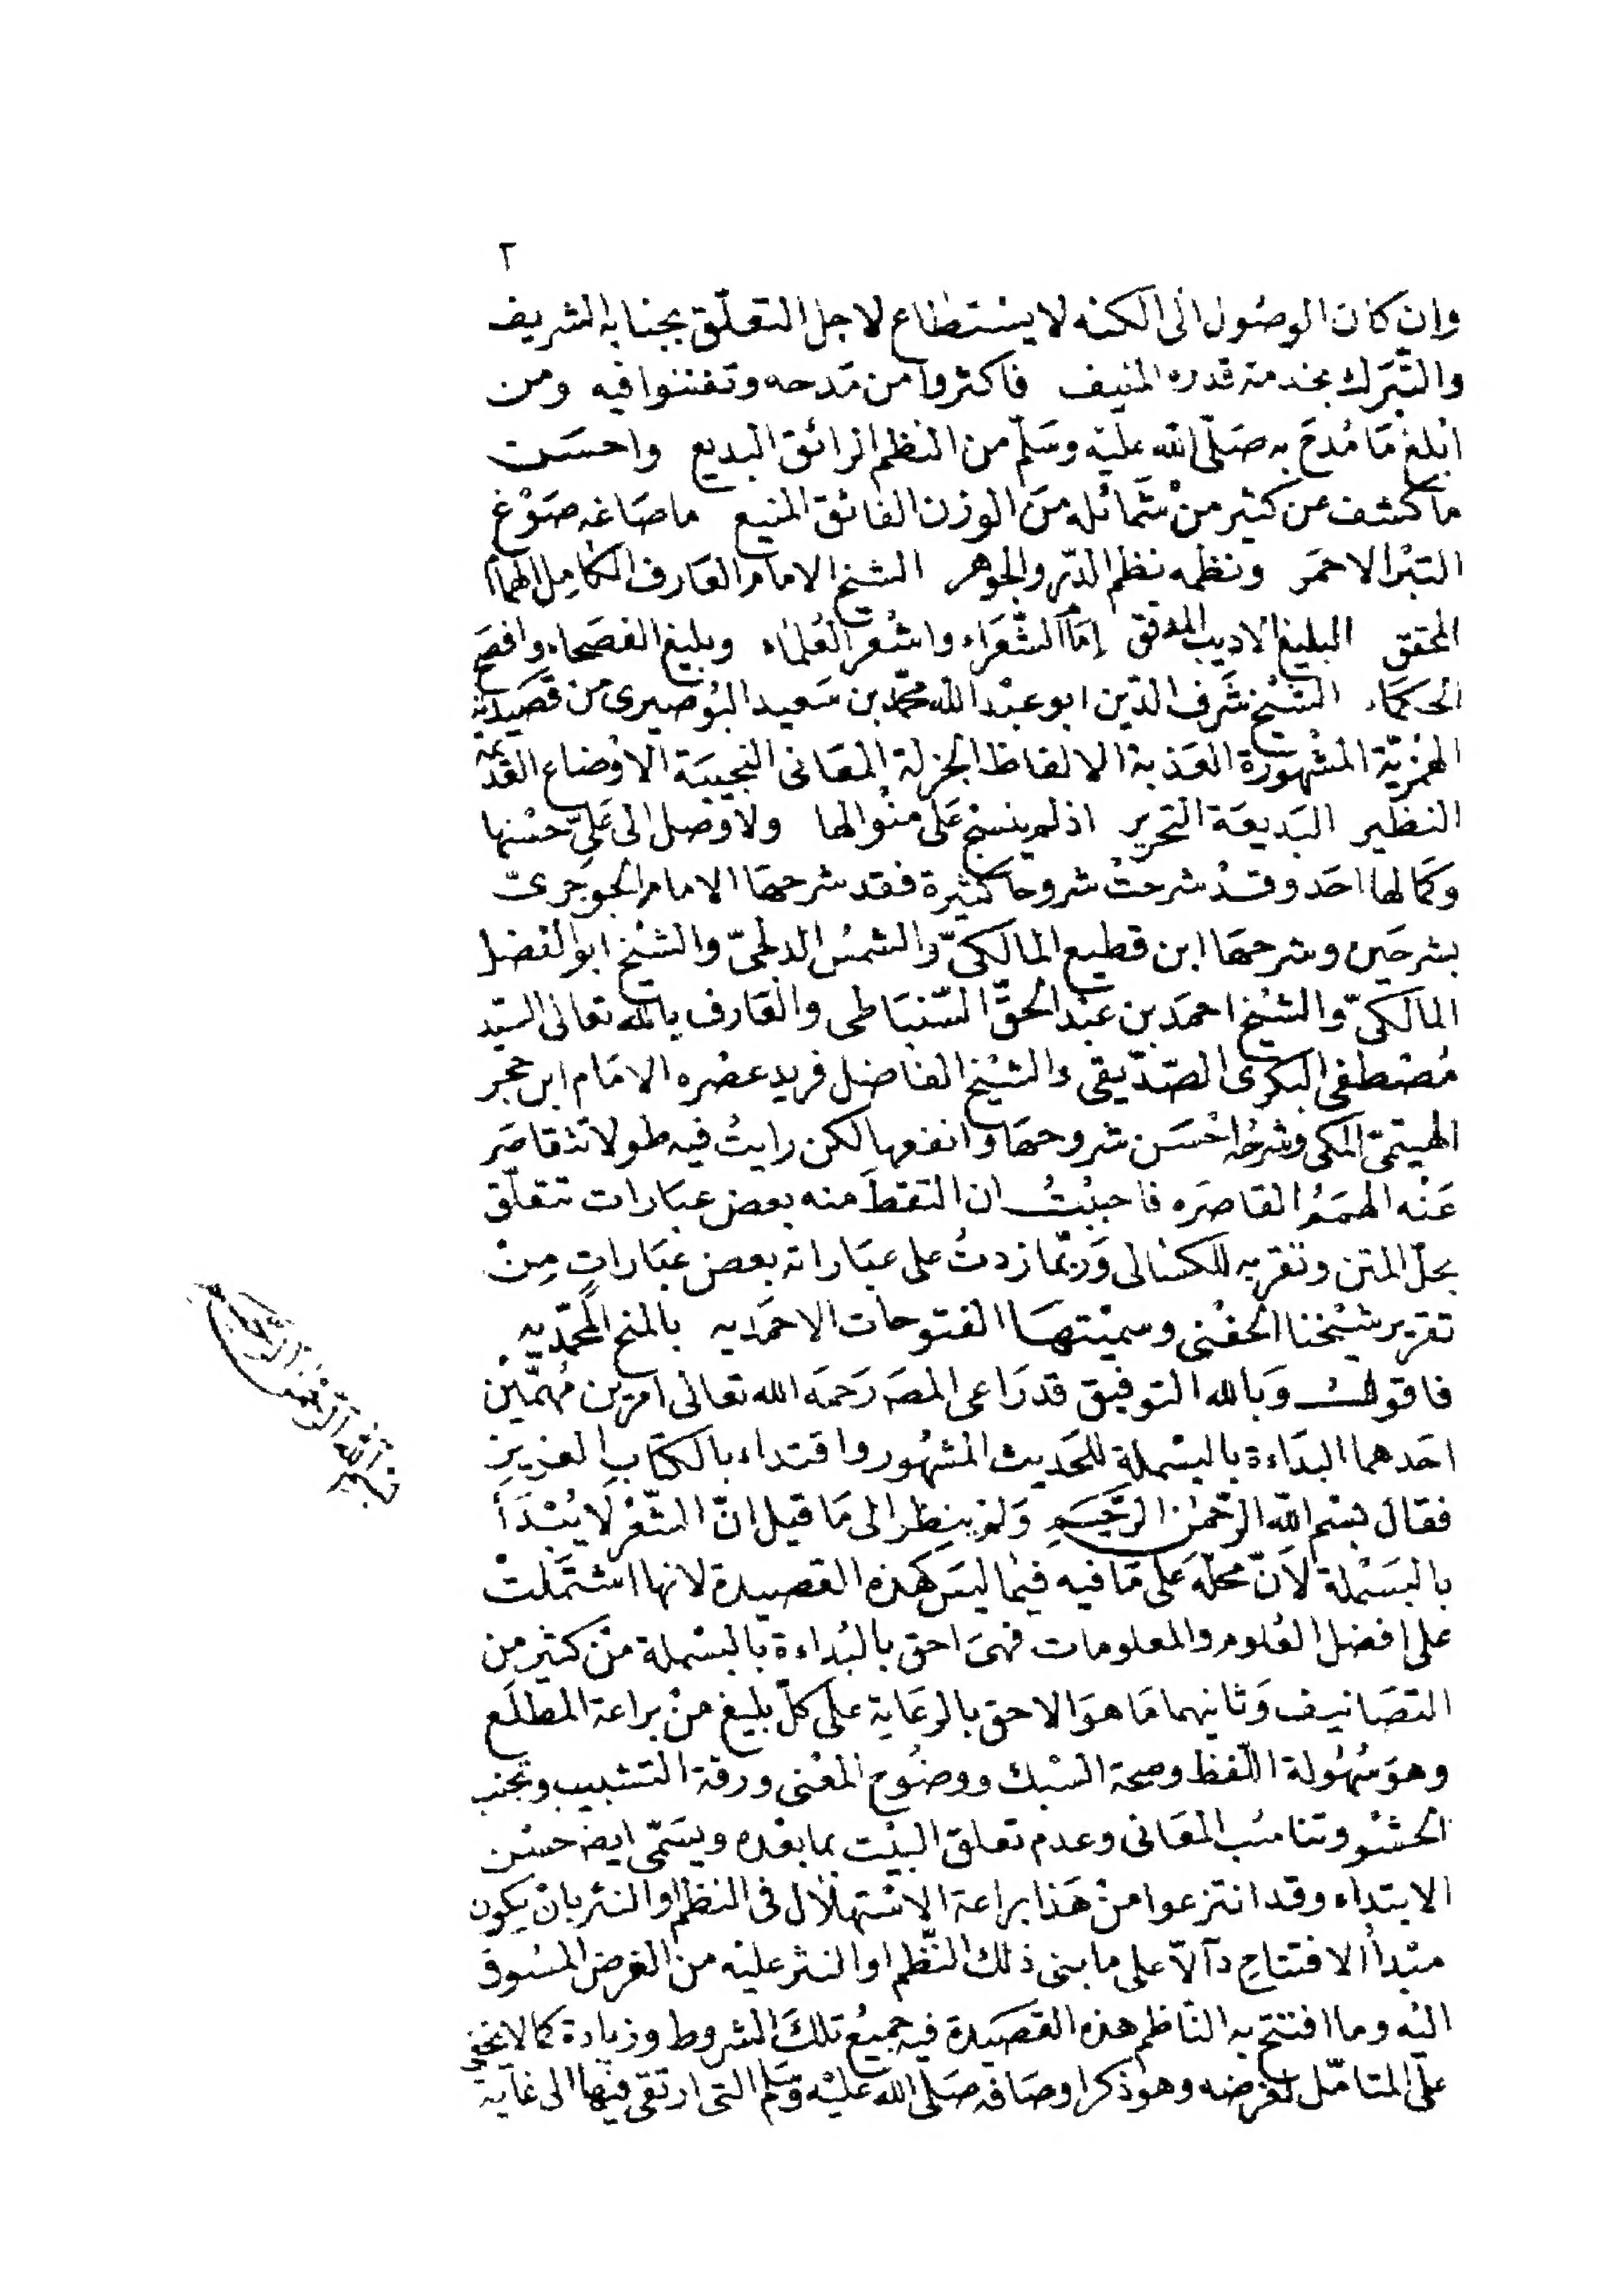 ٢
وان كان الوصُول الى الكنه لا يستطاع لاجل التعلّق بجنابه الشريف
والتّبرّك بخدمة قدره المنيف فاكثروا من مَدحه وتفننوا فيه ومن
ابلغ مَا مُدحَ به صَلّى الله عليْه وسَلّم من النظم الرائق البديع واحسَن
ما كشف عن كثير منْ شَمائله منَ الوزن الفائق المنيع ما صَاغه صَوْغ
التبْر الاحمَر ونظمه نظم الدّر والجوهر الشيخ الامام العَارف الكامِل الهمام
المحقق البليغ الاديب المدقق اِمَام الشّعَرَاء واشعر العُلمَاء وبليغ الفصَحاء وافصَح
الحكمَاء الشيْخ شَرَف الدّين ابو عبْد الله محمّد بن سَعيد البُوصيرى من قصَيدته
الهمْزيّة المشهوُرة العَذبة الالفاظ الجزلة المعَانى النجيبَة الاوْضاع العَديمة
النظير البَديعَة التحرير اذ لم ينسَج عَلى منْوالها ولا وصَل الى عَلىّ حسْنها
وكمَالها احَد وقدْ شرحتْ شروحا كثيرة فقد شرحهَا الامام الجوْجَرىّ
بشرحَين وشرحهَا ابن قطيع المالكىّ والشمسُ الدلجىّ والشيْخ ابو الفضل
المالكىّ والشيْخ احمَد بن عبْد الحقّ السّنبَاطى والعَارف بالله تعَالى السيّد
مُصْطفى البكرى الصّدّيقى والشيْخ الفاضل فريد عصْره الامَام ابن حجر
الهيتمىّ المكى وشرحُه احْسَن شروحهَا وانفعها لكن رايتُ فيه طولا تتقاصَر
عَنْه الهمَمُ القاصَره فاحببْتُ ان التقطَ منه بعض عبَارات تتعَلّق
بحلّ المتن وتقريبه للكسَالى وَربّما زدتُ على عبَاراته بعض عبَاراتٍ مِنْ
تقرير شيْخنا الحفْنى وسميْتهَا الفتوحات الاحمَديه بالمنح المحمّديه
فاقولُ وَبالله التوفيق قد رَاعى المصَ رَحمَه الله تعالى امرَين مُهمّيْن
احَدهما البدَاءة بالبسْملة للحَديث المشهُور واقتداء بالكتَاب العَزيزِ
فقال بسْم الله الرّحمٰن الرّحيمِ وَلمْ ينظر الى مَا قيل انّ الشّعْر لَا يُبْدَأ
بالبسَمْلة لانّ محلّه عَلى مَا فيه فيْما ليسَ كهَذه القصيدة لانها اشتمَلتْ
على افضل العُلوم والمعلومات فهىَ احق بالبُداءة بالبسْملة منْ كثير من
التصَانيف وَثانيهما مَا هوَ الاحق بالرعَاية عَلى كلّ بليغ منْ براعة المطلَع
وهوَ سُهُولة اللّفظ وصحة السبْك ووضُوح المعْنى ورقة التشبيب وتجنب
الحشْو وتناسُب المعَانى وعدم تعلق البيْت بما بعْده ويسَمّى ايضَ حسْن
الابتداء وقد انتزعوا منْ هَذا براعة الاسْتهلال فى النظم او النثر بانْ يكون
مبْدأ الافتتاحِ دآلاّ على ما بنى ذلك النّظم او النثر عليْه من الغرض المسُوق
اليْه وما افتتح به النّاظم هذه القصَيدة فيه جميعُ تلكَ الشروط وزيادة كما لا يخفى
علَى المتامّل لغرضه وهو ذكر اوصَافه صَلى الله عليْه وسَلم التى ارتقى فيْها الى غاية
بسم الله الرّحمٰن الرّحيم